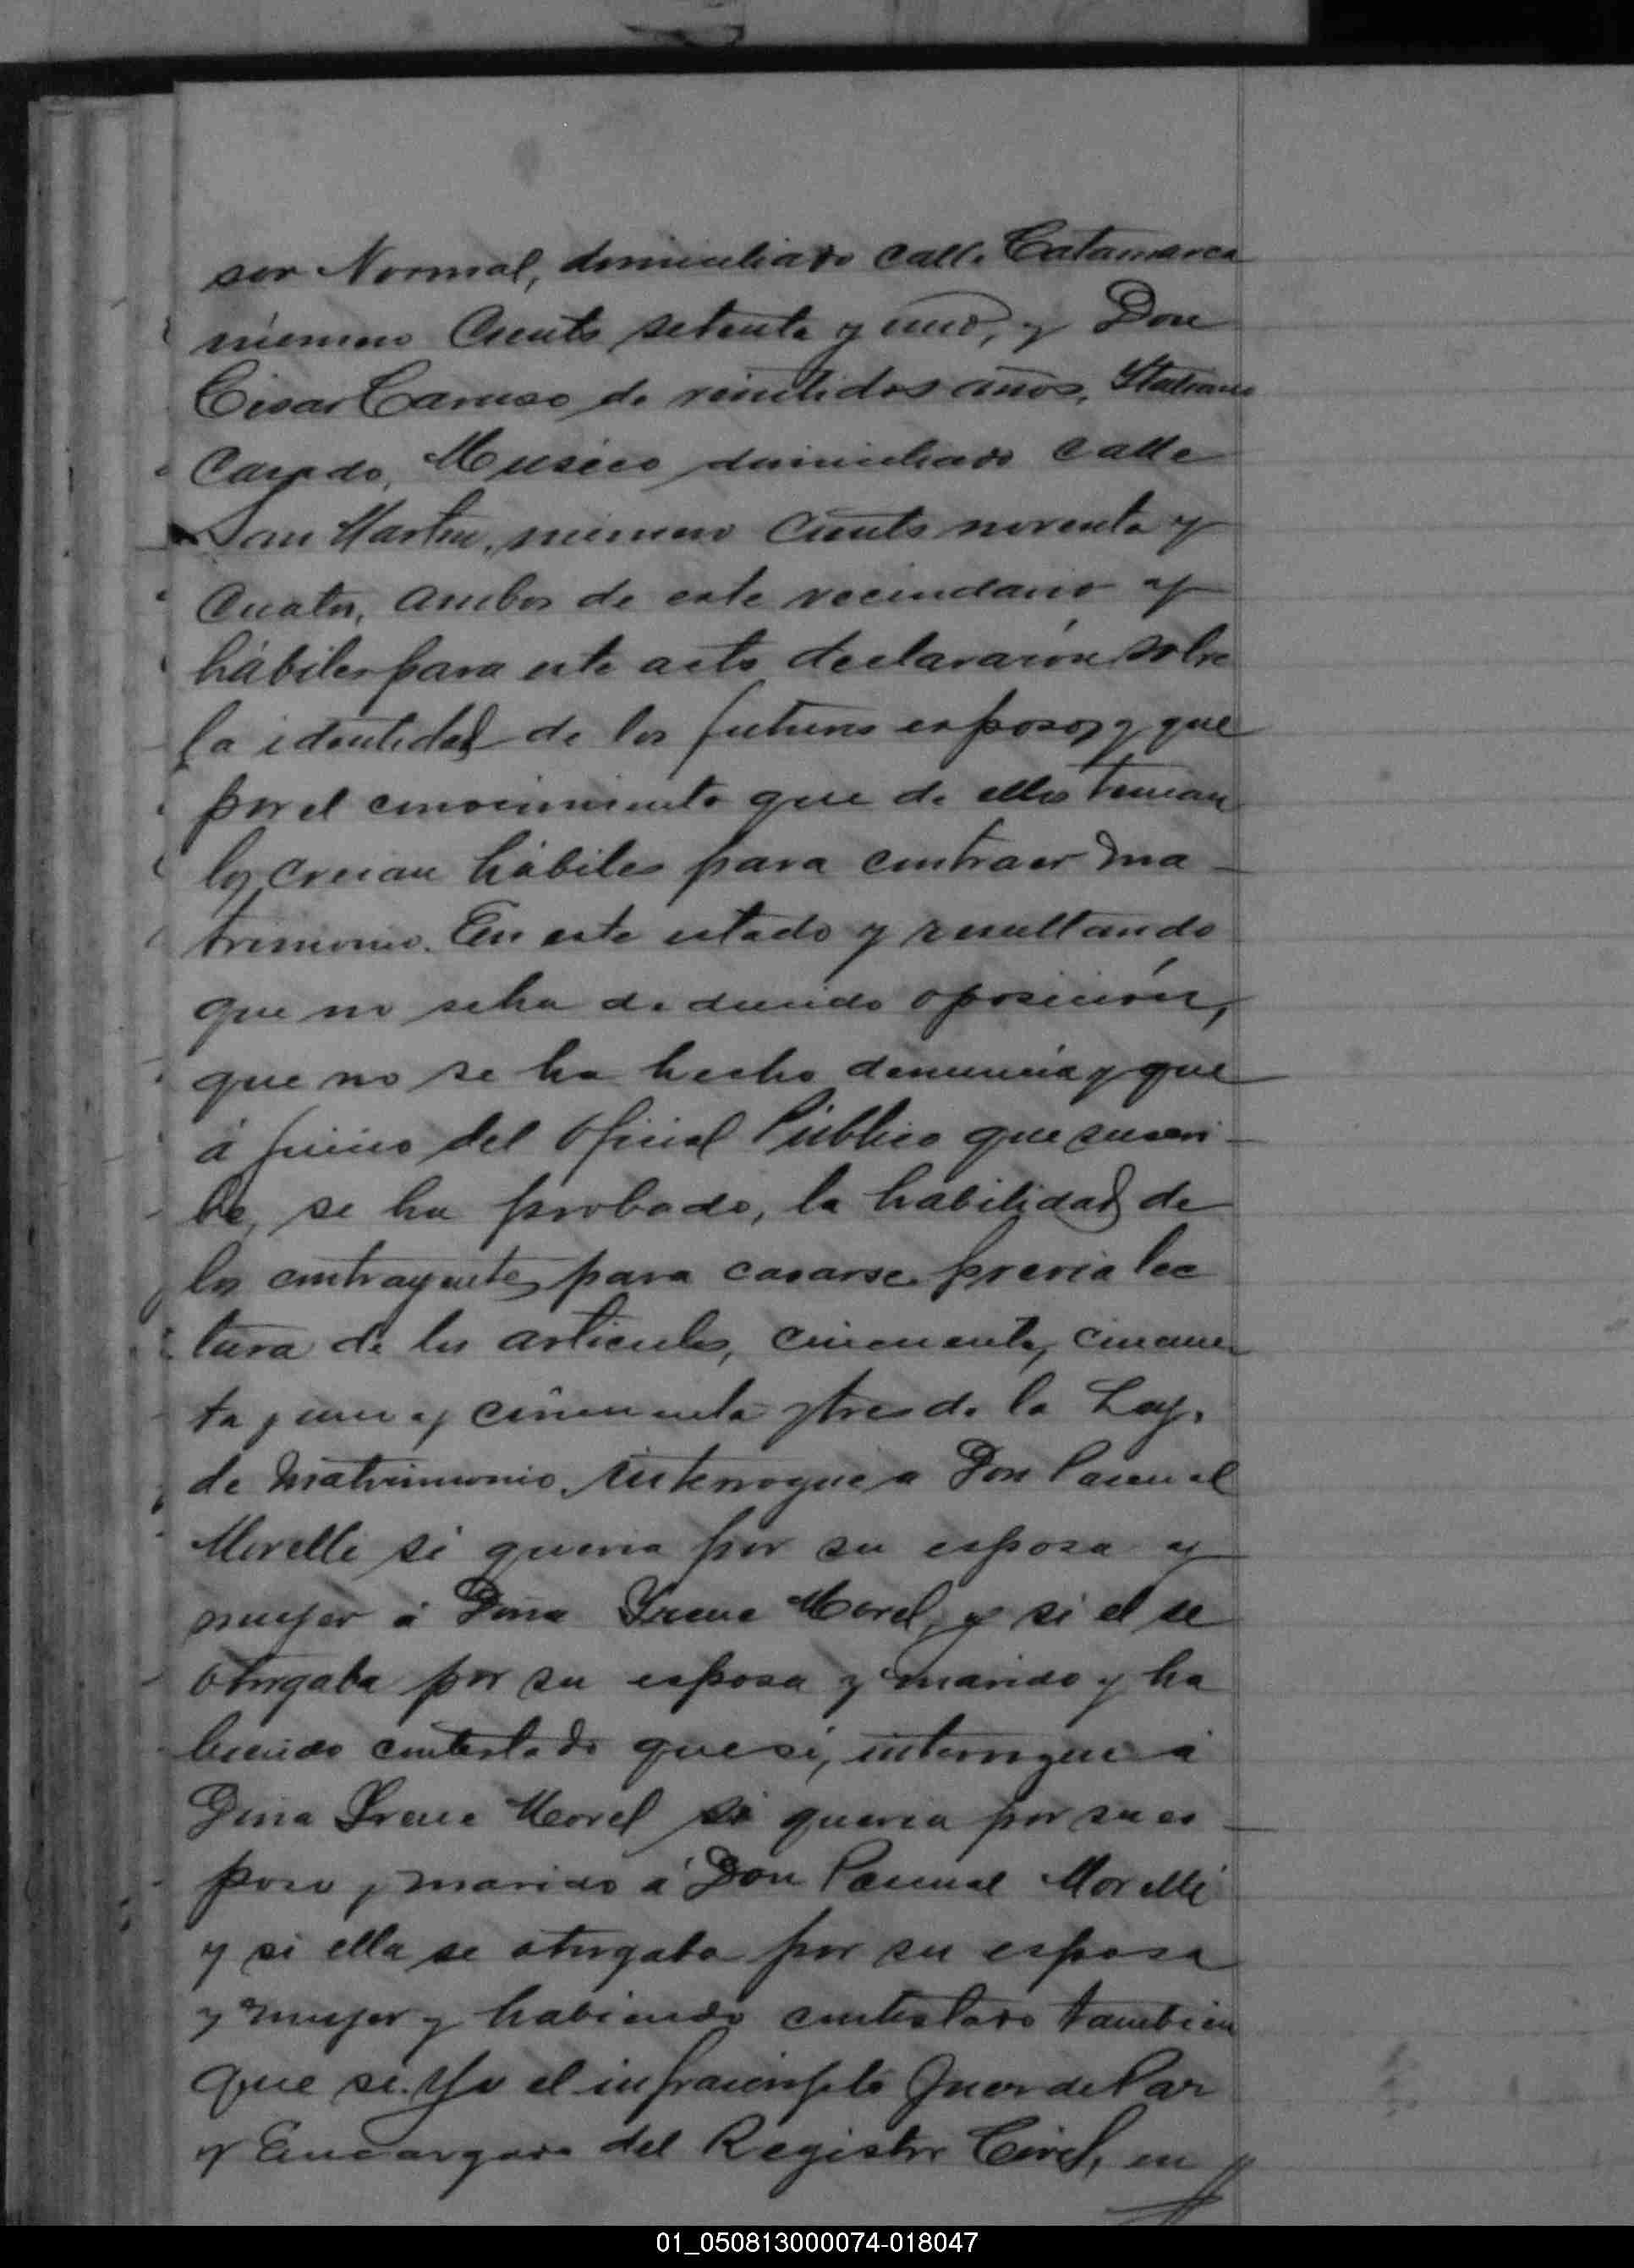 sor Normal, domiciliado calle Catamarca
número Ciento setenta y uno, y Don
César Caruso de veintidos años, Italiano
Casado, Músico domiciliado calle
San Martin, número Ciento noventa y
Cuatro, ambos de este vecindario y
hábiles para este acto declararon sobre
la identidad de los futuros esposos y que
por el conocimiento que de ellos tenian
los creian hábiles para contraer ma-
trimonio. En este estado y resultando
que no se ha deducido oposición,
que no se ha hecho denuncia y que
á juicio del Oficial Público que suscri-
be, se ha probado, la habilidad de
los contrayentes para casarse previa lec
tura de los articulos, cincuenta, cincuen
ta y uno y cincuenta y tres de la Ley.
de Matrimonio. interrogue a Don Pascual
Morelli si queria por su esposa y
mujer á Doña Irene Morel, y si el se
otorgaba por su esposo y marido y ha
biendo contestado que sí, interrogue á
Doña Irene Morel si queria por su es-
poso y marido á Don Pascual Morelli
y si ella se otorgaba por su esposa
y mujer y habiendo contestado tambien
que si. Yo el infrascripto Juez de Paz
y Encargado del Registro Civil, en
01_050813000074-018047